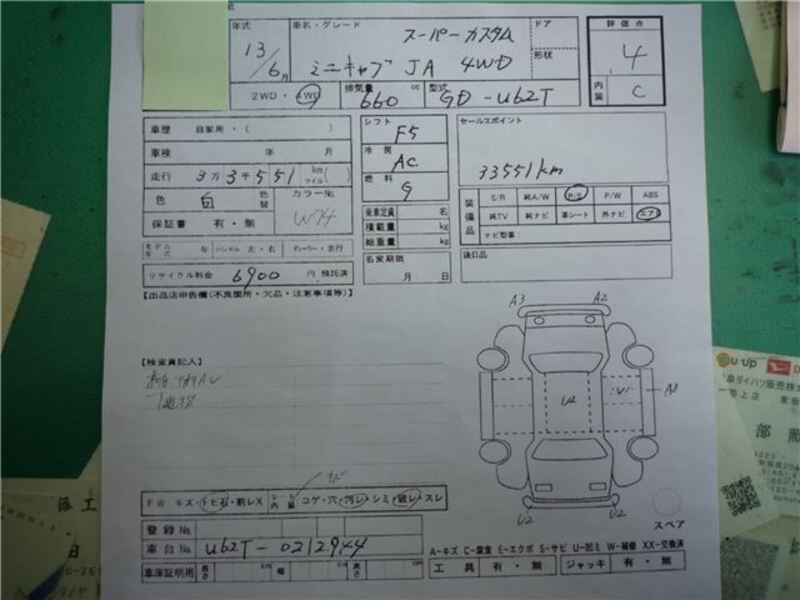 年式 車名・グレード ドア 評価点
13/6月 スーパーカスタム 4
ミニキャブ JA 4WD 形状
2WD・4WD 排気量 660 cc 型式 GD-U62T 内装 C
車歴 自家用・( ) シフト F5 セールスポイント
車検 年 月 冷房 AC 33551km
走行 3万3千551 km マイル( ) 燃料 G
色 白 色替 カラー№ W74 装備品 S/R 純A/W P/S P/W ABS
保証書 有・無 乗車定員 名 純TV 純ナビ 革シート 外ナビ エアB
積載量 kg ナビ型番:
モデル年式 年 ハンドル 左・右 ディーラー・並行 総重量 kg
リサイクル料金 6900 円 預託済 名変期限 月 日 後日品
【出品店申告欄(不良箇所・欠品・注意事項等)】
A3 A2
【検査員記入】
U4 A3
FW キズ・トビ石・割レX シート内装 コゲ・穴・汚レ・シミ・破レ・スレ
U2 U2
登録 No. スペア
車台 No. U62T-0212944
A-キズ C-腐食 E-エクボ S-サビ U-凹ミ W-補修 XX-交換済
車庫証明用 長さ cm 幅 cm 高さ cm 工具 有・無 ジャッキ 有・無
U-up
車ダイハツ販売株